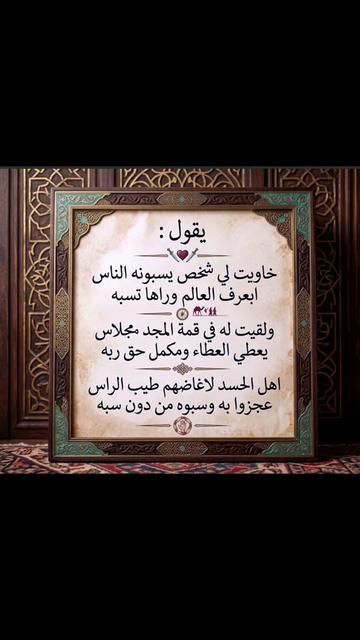 يقول :
خاويت لي شخص يسبونه الناس
ابعرف العالم وراها تسبه
ولقيت له في قمة المجد مجلاس
يعطي العطاء ومكمل حق ربه
اهل الحسد لاغاضهم طيب الراس
عجزوا به وسبوه من دون سبه